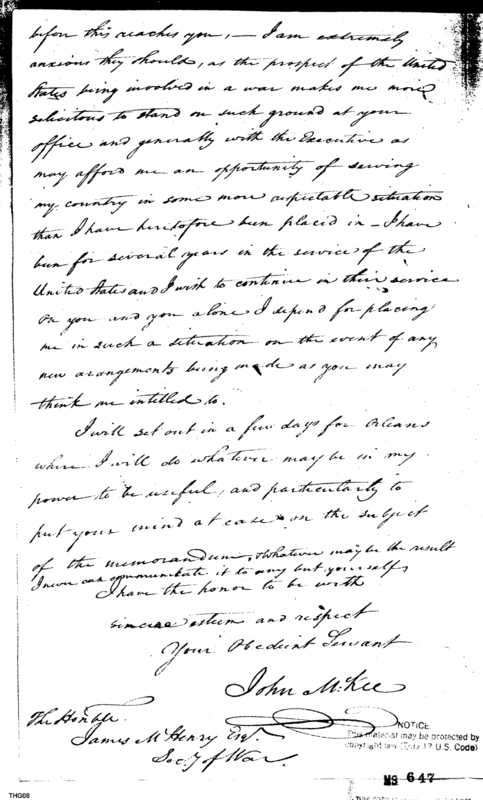 before this reaches you, — I am extremely
anxious they should, as the prospect of the United
States being involved in a war makes me more
solicitous to stand on such ground at your
office and generally with the Executive as
may afford me an opportunity of serving
my country in some more respectable situation
than I have heretofore been placed in — I have
been for several years in the service of the
United States and I wish to continue in their service
On you and you alone I depend for placing
me in such a situation on the event of any
new arangements being made as you may
think me intitled to.
I will set out in a few days for Orleans
where I will do whatever may be in my
power to be useful, and particularly to
put your mind at ease on the subject
of the memorandum, whatever may be the result
I never can communicate it to any but yourself,
I have the honor to be with
sincere esteem and respect
Your Obedient Servant
John McKee
The Honble
James McHenry Esqr
Secy of War.
NOTICE
This material may be protected by
copyright law (Title 17 U.S. Code)
MS 647
THG08